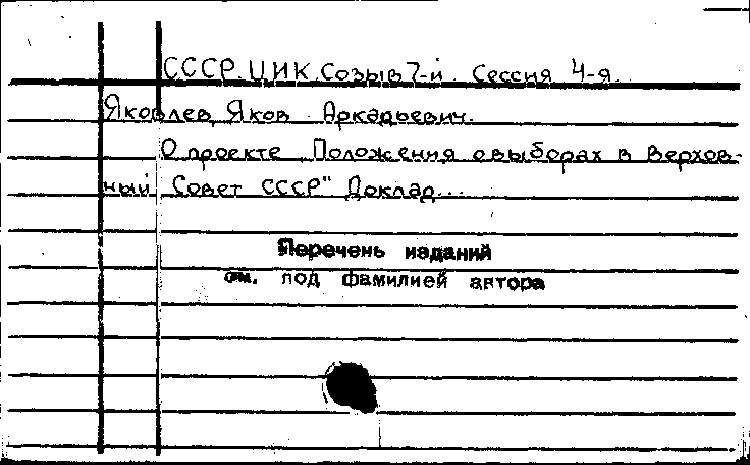 СССР. ЦИК. Созыв 7-й. Сессия 4-я.
Яковлев, Яков Аркадьевич.
О проекте „Положения о выборах в Верхов-
ный Совет СССР" Доклад...
Перечень изданий
см. под фамилией автора